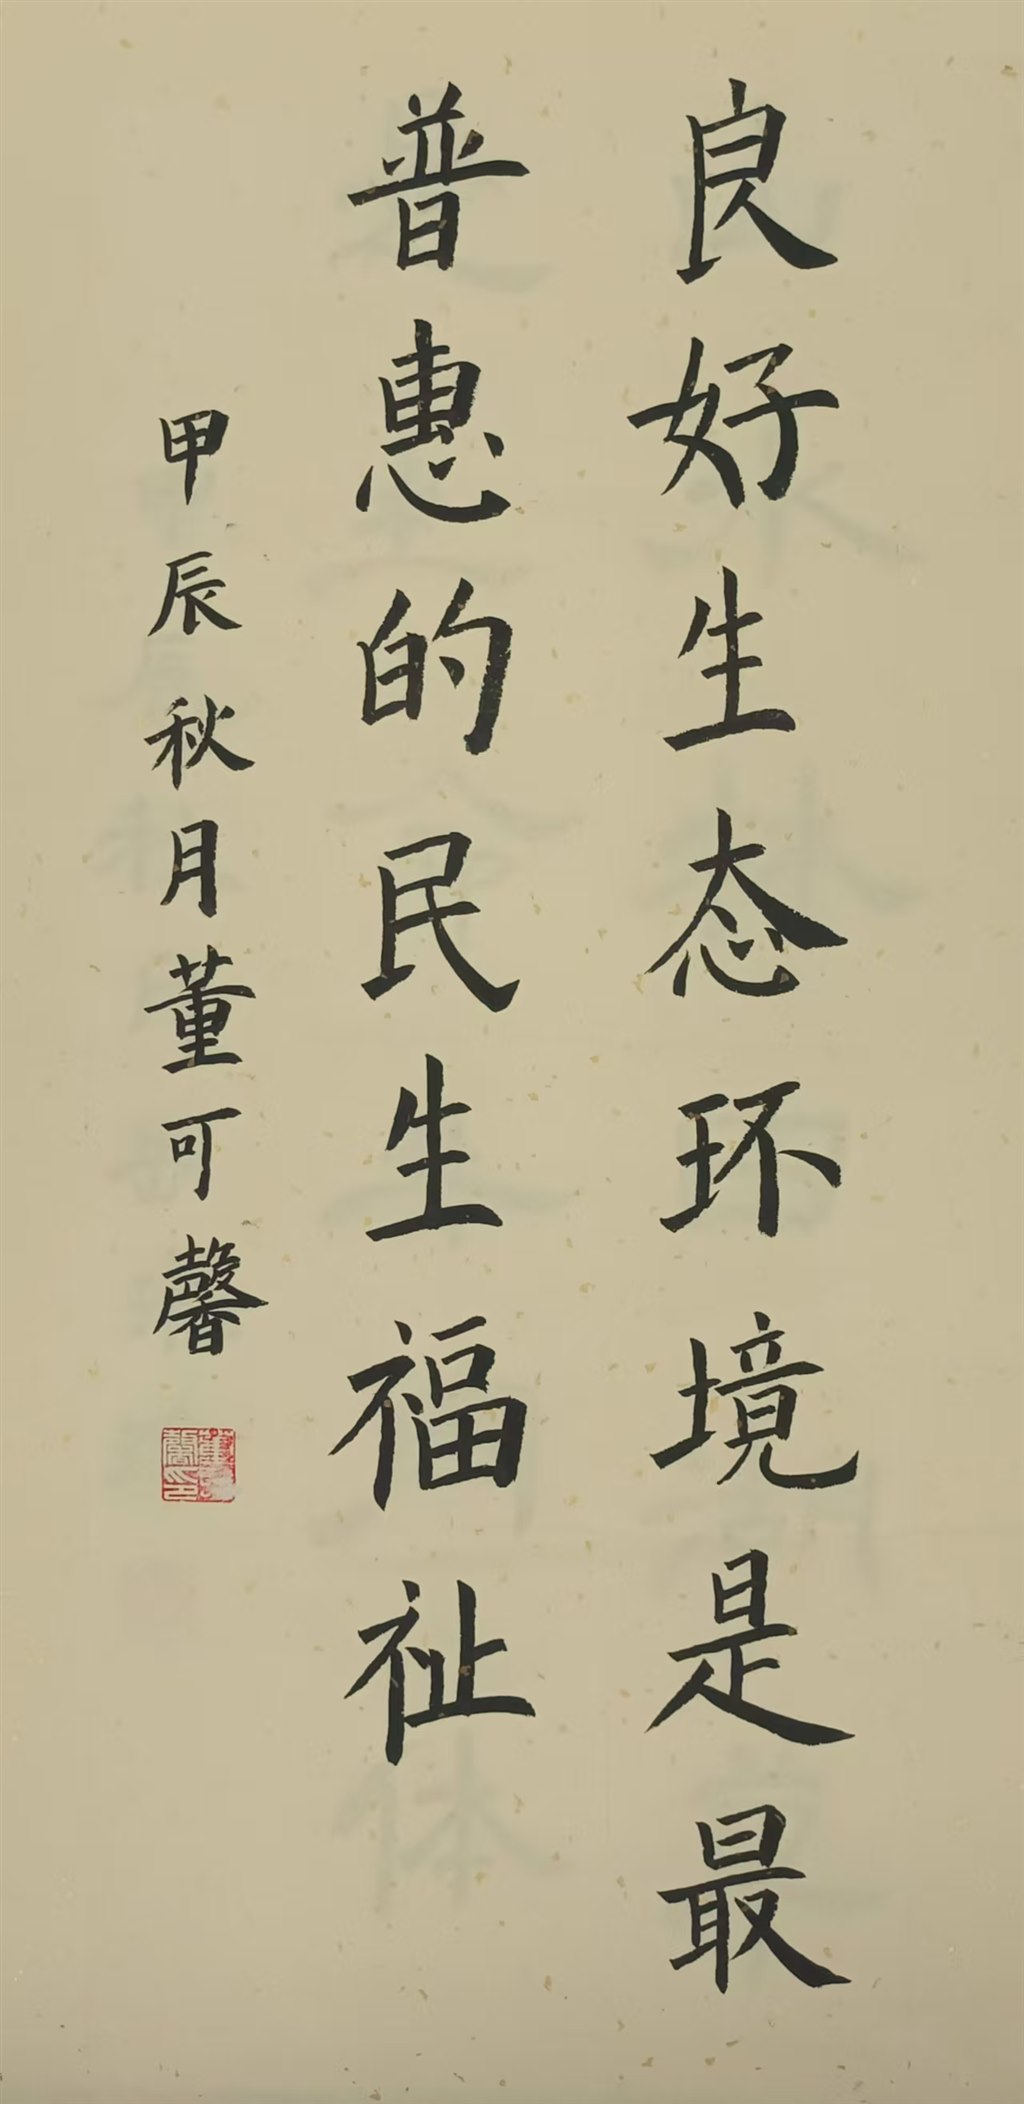 良好生态环境是最
普惠的民生福祉
甲辰秋月董可馨